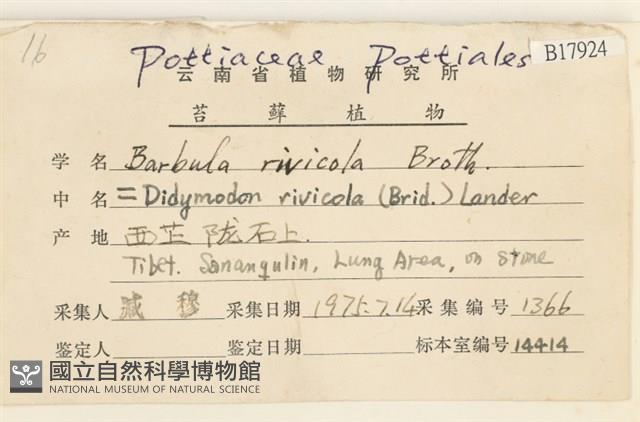 16
Pottiaceae Pottiales
B17924
云南省植物研究所
苔藓植物
学名 Barbula rivicola Broth.
中名 = Didymodon rivicola (Brid.) Lander
产地 西芷陇石上.
Tibet. Sanangulin, Lung Area, on stone
采集人 臧穆 采集日期 1975.7.14 采集编号 1366
鉴定人 鉴定日期 标本室编号 14414
國立自然科學博物館
NATIONAL MUSEUM OF NATURAL SCIENCE